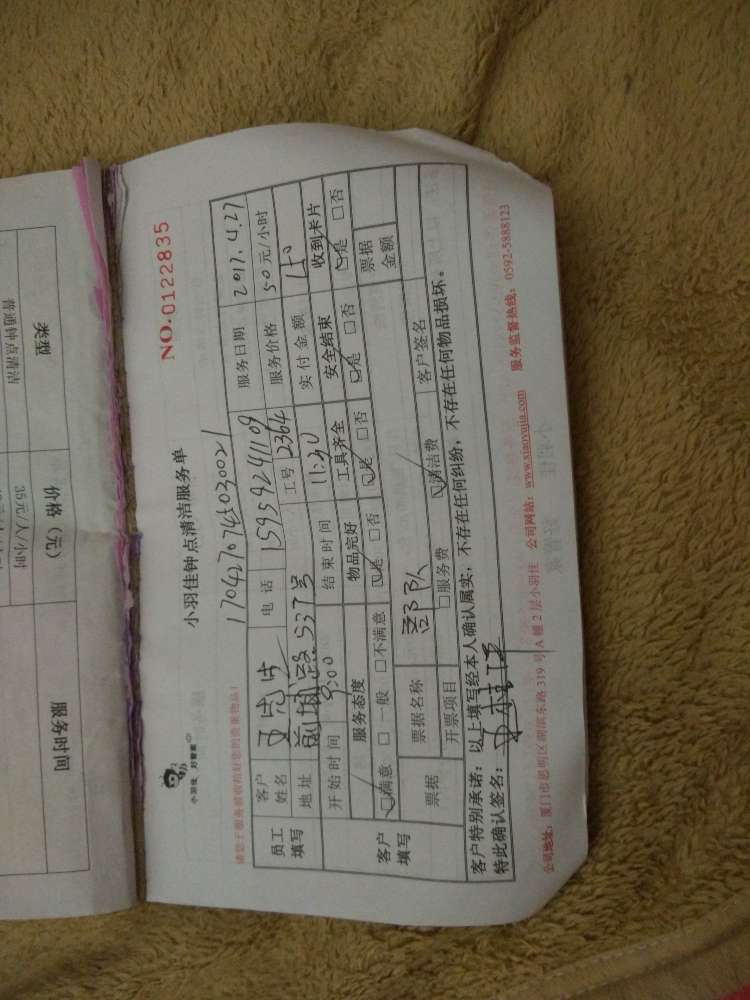 类型
价格（元）
服务时间
普通钟点清洁
35元/人/小时
小羽佳钟点清洁服务单
NO.0122835
小羽佳 好管家
请您于服务前收拾好您的贵重物品！
170427074503002
员工填写
客户姓名
王先生
电话
15959241109
服务日期
2017.4.27
地址
前埔路537号
工号
2364
服务价格
50元/小时
开始时间
9:00
结束时间
11:30
实付金额
客户填写
服务态度
物品完好
工具齐全
安全结束
收到卡片
☑满意 □一般 □不满意
☑是 □否
☑是 □否
☑是 □否
☑是 □否
票据
票据名称
部队
票据金额
开票项目
□服务费
☑清洁费
客户签名
客户特别承诺：以上填写经本人确认属实，不存在任何纠纷，不存在任何物品损坏。
特此确认签名：
公司地址：厦门市思明区湖滨东路319号A幢2层小羽佳 公司网站：www.xiaoyujia.com 服务监督热线：0592-5888123